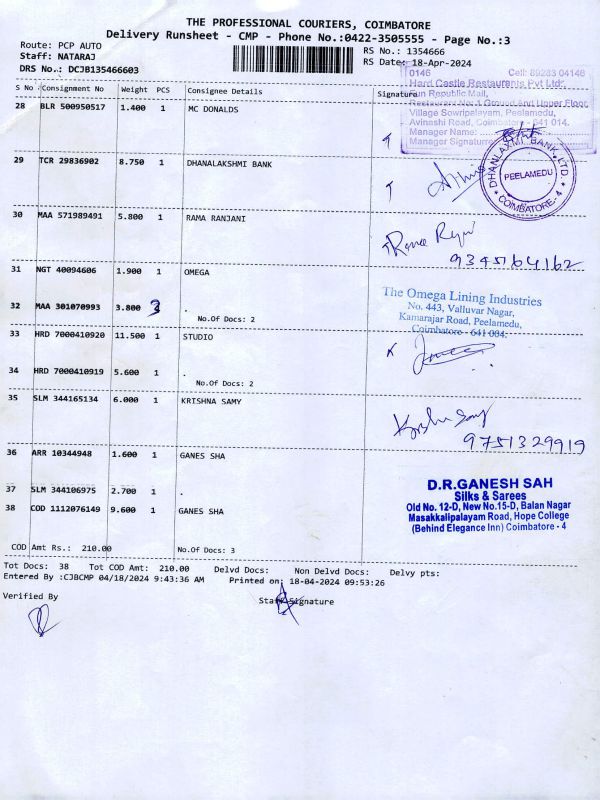 THE PROFESSIONAL COURIERS, COIMBATORE
Delivery Runsheet - CMP - Phone No.:0422-3505555 - Page No.:3
Route: PCP AUTO
Staff: NATARAJ
DRS No.: DCJB135466603
RS No.: 1354666
RS Date: 18-Apr-2024
S No Consignment No Weight PCS Consignee Details Signature
0146 Cell: 89283 04146
Hard Castle Restaurants Pvt Ltd.
Fun Republic Mall,
Restaurant No:4 Ground And Upper Floor
Village Sowripalayam, Peelamedu,
Avinashi Road, Coimbatore - 641 014.
Manager Name:
Manager Signature
28 BLR 500950517 1.400 1 MC DONALDS
29 TCR 29836902 8.750 1 DHANALAKSHMI BANK
DHANLAXMI BANK LTD.
PEELAMEDU
COIMBATORE - 4
30 MAA 571989491 5.800 1 RAMA RANJANI
9345164162
31 NGT 40094606 1.900 1 OMEGA
32 MAA 301070993 3.800 3 .
No.Of Docs: 2
The Omega Lining Industries
No. 443, Valluvar Nagar,
Kamarajar Road, Peelamedu,
Coimbatore - 641 004.
33 HRD 7000410920 11.500 1 STUDIO
34 HRD 7000410919 5.600 1 .
No.Of Docs: 2
35 SLM 344165134 6.000 1 KRISHNA SAMY
Krishna Samy
9751329919
36 ARR 10344948 1.600 1 GANES SHA
37 SLM 344106975 2.700 1 .
38 COD 1112076149 9.600 1 GANES SHA
D.R.GANESH SAH
Silks & Sarees
Old No. 12-D, New No.15-D, Balan Nagar
Masakkalipalayam Road, Hope College
(Behind Elegance Inn) Coimbatore - 4
COD Amt Rs.: 210.00 No.Of Docs: 3
Tot Docs: 38 Tot COD Amt: 210.00 Delvd Docs: Non Delvd Docs: Delvy pts:
Entered By :CJBCMP 04/18/2024 9:43:36 AM Printed on: 18-04-2024 09:53:26
Verified By Staff Signature